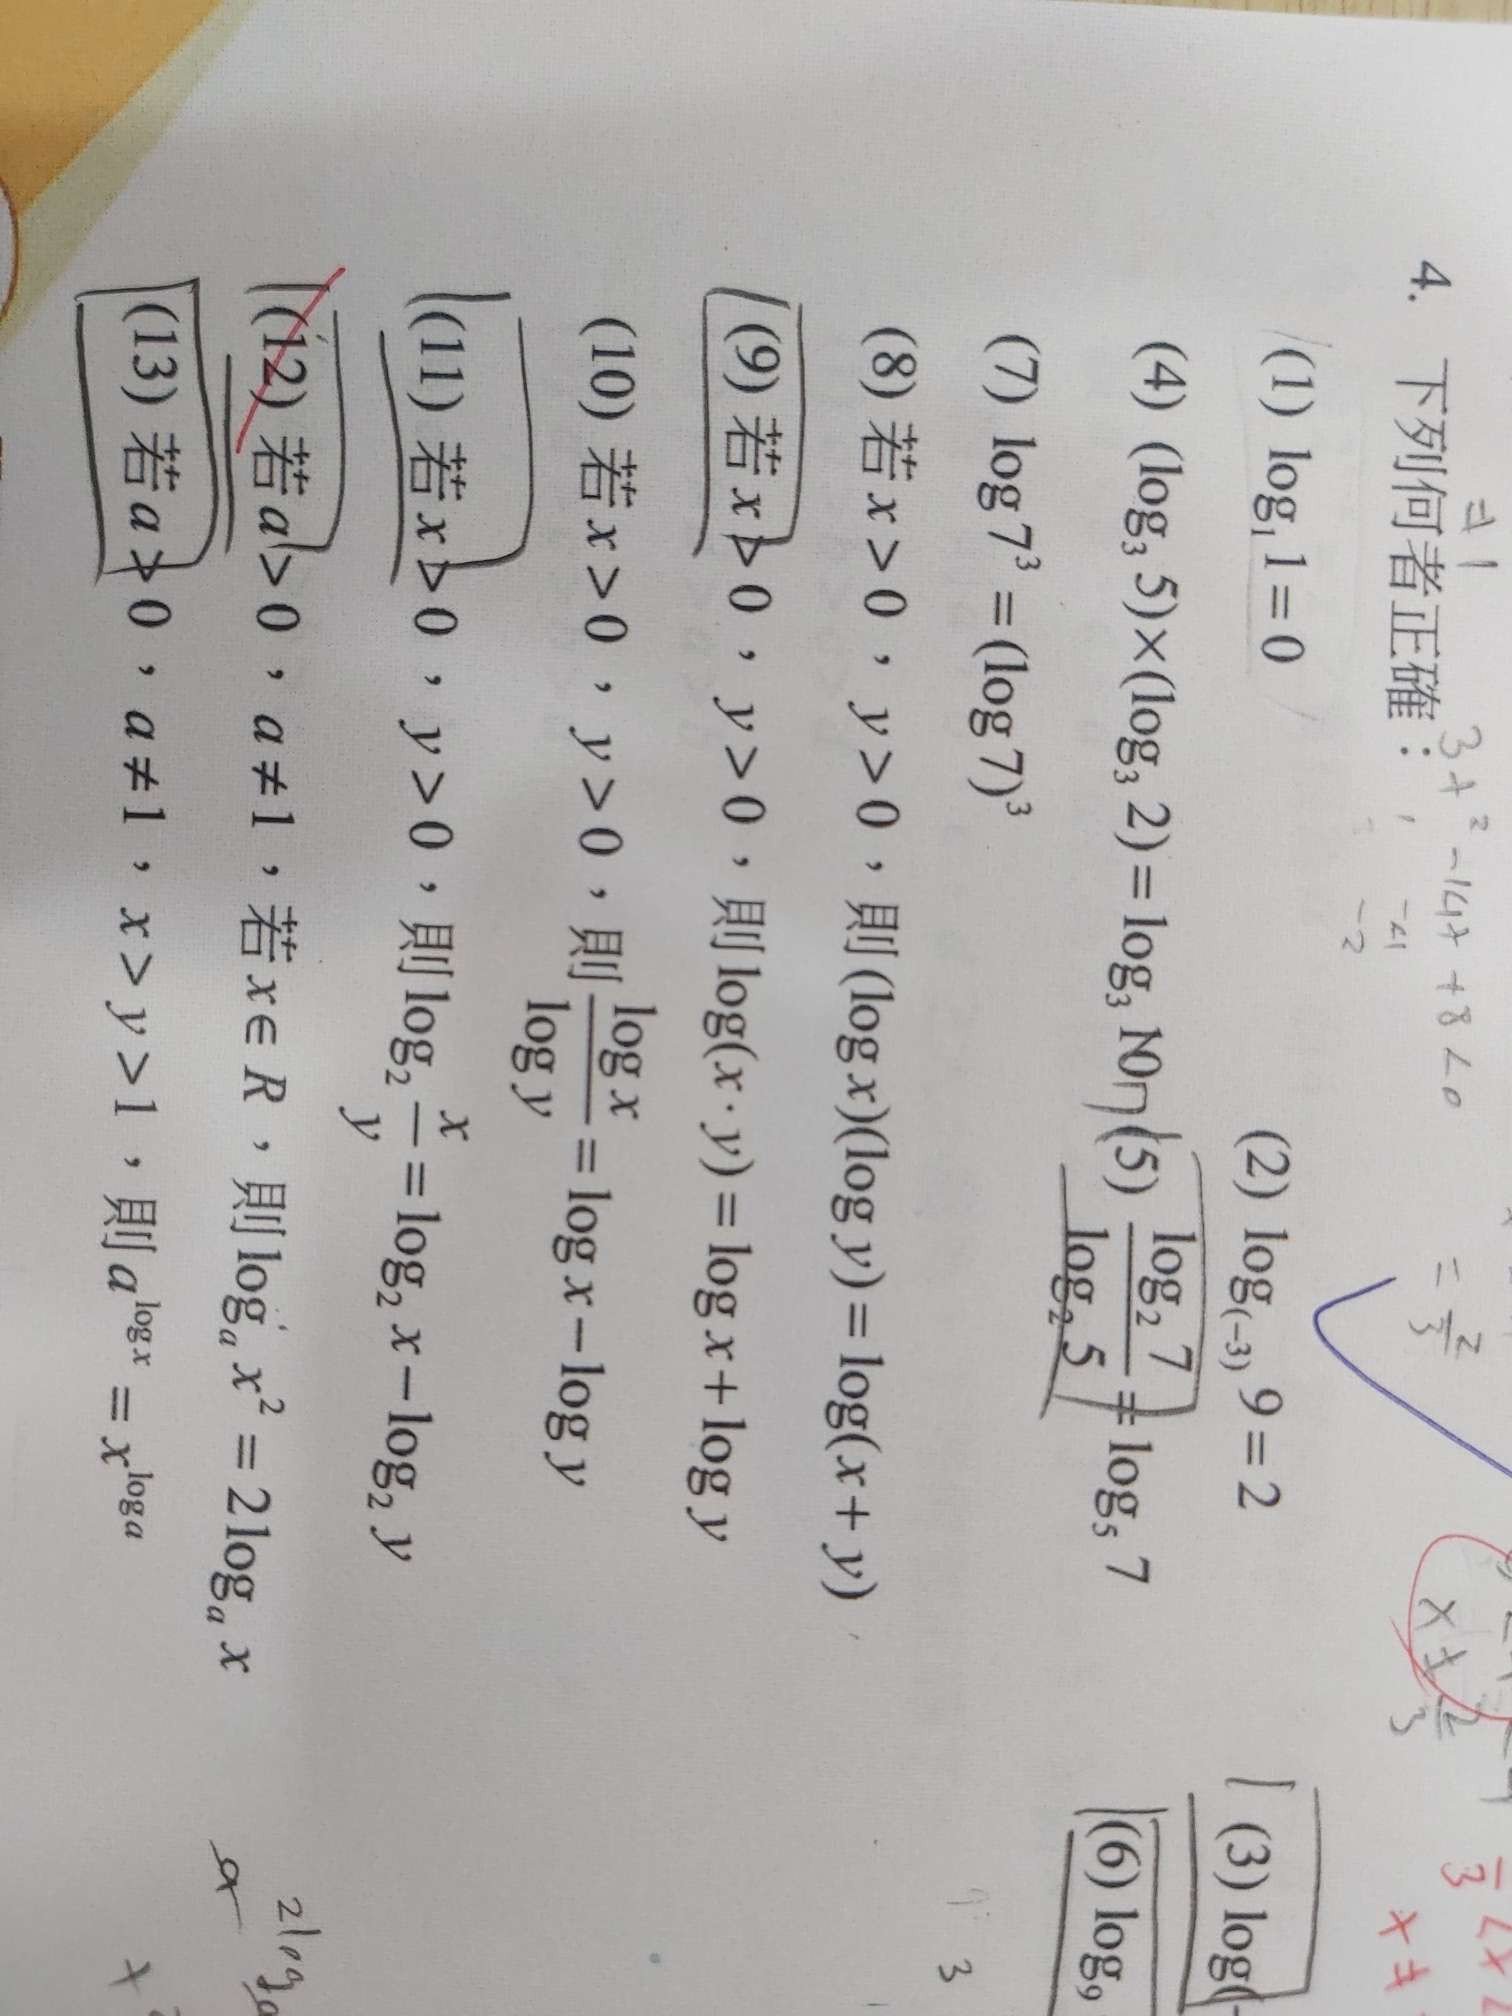 ≠1
3x²-14x+8<0
4. 下列何者正確：
-4
-2
= 2/3
(1) log₁1=0 (2) log₍₋₃₎9=2 (3) log(
(4) (log₃5)×(log₃2)=log₃10 (5) log₂7/log₂5=log₅7 (6) log₉
(7) log7³=(log7)³
3
(8) 若x>0，y>0，則(log x)(log y)=log(x+y)
(9) 若x>0，y>0，則log(x·y)=log x+log y
(10) 若x>0，y>0，則log x/log y=log x−log y
(11) 若x>0，y>0，則log₂x/y=log₂x−log₂y
(12) 若a>0，a≠1，若x∈R，則logₐx²=2logₐx
2logₐ
(13) 若a>0，a≠1，x>y>1，則a^(log x)=x^(log a)